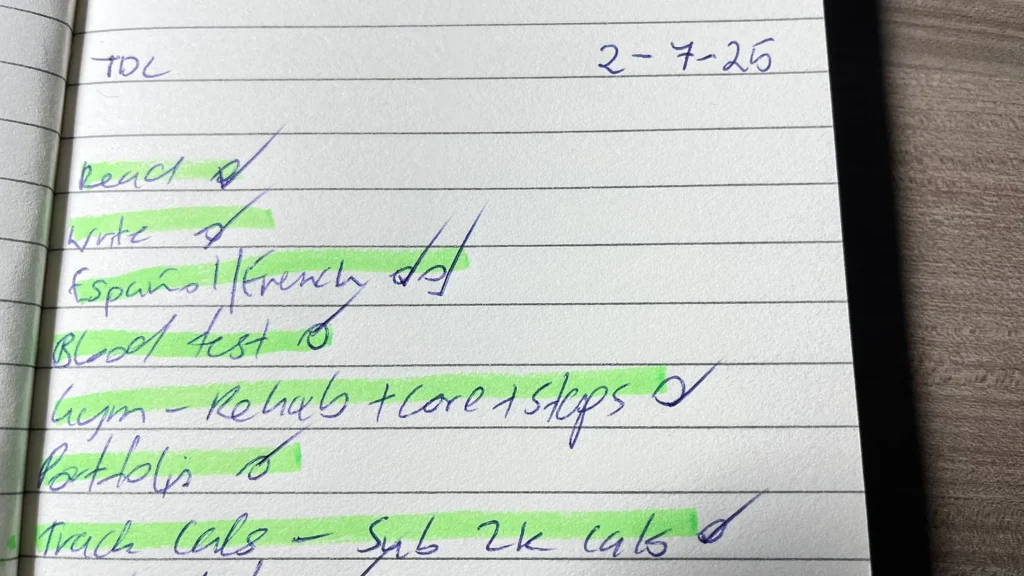 TDL 2-7-25
Read
Write
Español/French
Blood test
Gym - Rehab + core + steps
Portfolio
Track Cals - Sub 2k cals